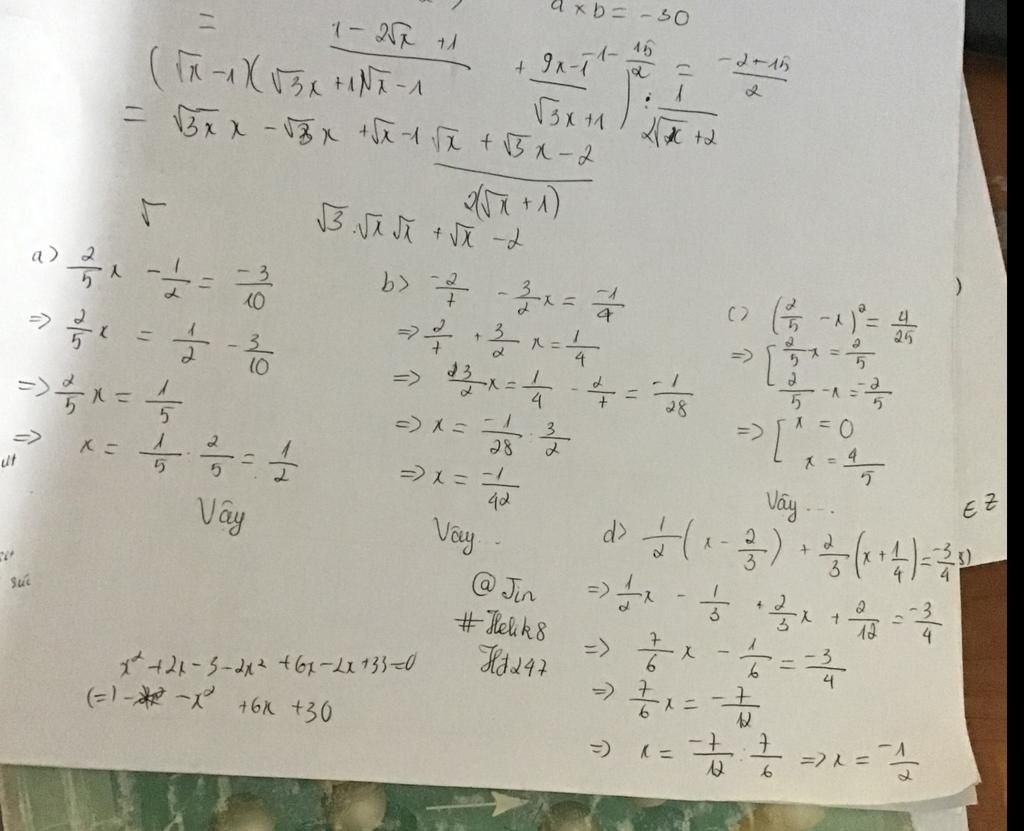 a × b = -30
= 1 - 2√x + 1
(√x - 1)(√3x + 1)√x - 1 + 9x - 1 / √3x + 1) : 1 / 2√x + 2
-1 - 15/2 = -2+15/2
= √3x x - √3 x + √x - 1 √x + √3 x - 2 / 2(√x + 1)
√ √3 . √x √x + √x - 2
a) 2/5 x - 1/2 = -3/10
=> 2/5 x = 1/2 - 3/10
=> 2/5 x = 1/5
=> x = 1/5 : 2/5 = 1/2
Vậy
b) -2/7 - 3/2 x = -1/4
=> 2/7 + 3/2 x = 1/4
=> 3/2 x = 1/4 - 2/7 = -1/28
=> x = -1/28 : 3/2
=> x = -1/42
Vậy...
c) (2/5 - x)² = 4/25
=> [ 2/5 x = 2/5
2/5 - x = -2/5
=> [ x = 0
x = 4/5
Vậy ...
∈ Z
d) 1/2 (x - 2/3) + 2/3 (x + 1/4) = -3/4
=> 1/2 x - 1/3 + 2/3 x + 2/12 = -3/4
=> 7/6 x - 1/6 = -3/4
=> 7/6 x = -7/12
=> x = -7/12 : 7/6 => x = -1/2
@Jin
#Helik8
Hd247
x² + 2x - 3 - 2x² + 6x - 2x + 33 = 0
(=) - x² + 6x + 30